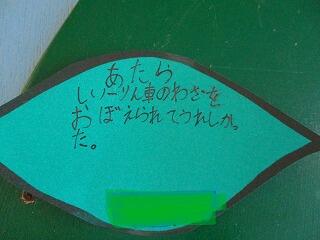 あたら
しい一りん車のわざを
おぼえられてうれしかっ
た。